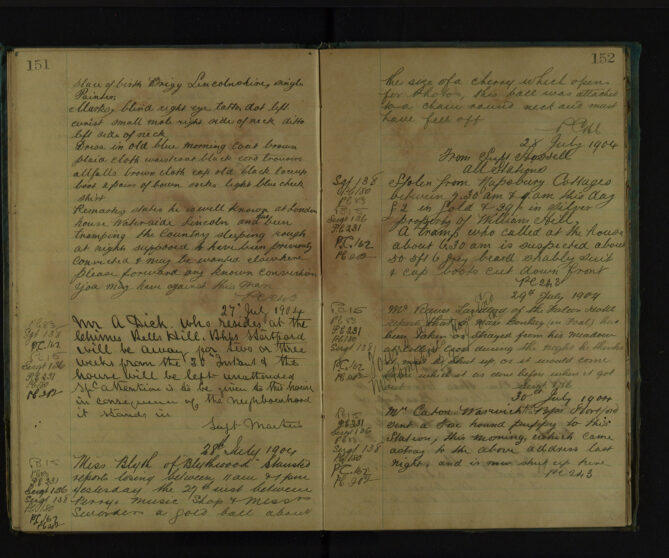 151
place of birth Brigg Lincolnshire, single
Painter
Marks, blind right eye tattoo dot left
wrist small mole right side of neck ditto
left side of neck
Dress in old blue morning coat brown
plaid cloth waistcoat black cord trousers
all falls brown cloth cap old black laceup
boots a pair of brown socks light blue check
shirt
Remarks, states he is well known at London
house Waterside Lincoln and has been
tramping the Country sleeping rough
at nights supposed to have been previously
convicted & may be wanted elsewhere
please forward any known convictions
you may have against this man
PC 243
27th July 1904
Mr A Dick. who resides at the
Chimes Bells Hill. B/ps Stortford
will be away for two or three
weeks from the 30th Instant & the
house will be left unattended
Spl attention is to be given to the house
in consequence of the neighbourhood
it stands in
Supt Martin
PC 83
Sergt 138
PC 162
PC 15
Sergt 136
PC 231
PC 150
PC 202
28th July 1904
Miss Blyth of Blythwood Stansted
reports losing between 11 am & 1 pm
yesterday the 27th inst between
Parrys Music Shop & Messrs
Sworders a gold ball about
PC 15
PC 83
PC 231
Sergt 136
Sergt 138
PC 150
PC 162
PC 202
152
the size of a cherry which opens
for photos, this ball was attached
to a chain round neck and must
have fell off
28 July 1904
From Supt
All Stations
Stolen from Cottages
between 7.30 am & 9 am this day
£2 in Gold & 39/- in silver
property of William Hill,
A tramp who called at the house
about 6.30 am is suspected about
50 5ft 6 grey beard shabby suit
& cap boots cut down front
PC 243
Sgt 138
PC 150
PC 83
PC 15
Sergt 136
PC 231
PC 162
PC 202
29th July 1904
Mr Landlord of the Hotel
reports that a Mare Donkey (in Foal) has
been taken or strayed from his meadow
during the night he thinks
must be shut up as it would come
as it as done before when it got
out
Sergt 136
PC 15
PC 83
PC 231
PC 150
Sergt 138
PC 162
PC 202
30th July 1904
Mr Caton Warwick B/ps Stortford
sent a Fox hound puppy to this
Station, this morning, which came
astray to the above address last
night, and is now shut up here
PC 243
PC 15
PC 231
Sergt 136
PC 83
Sergt 138
PC 150
PC 162
PC 202